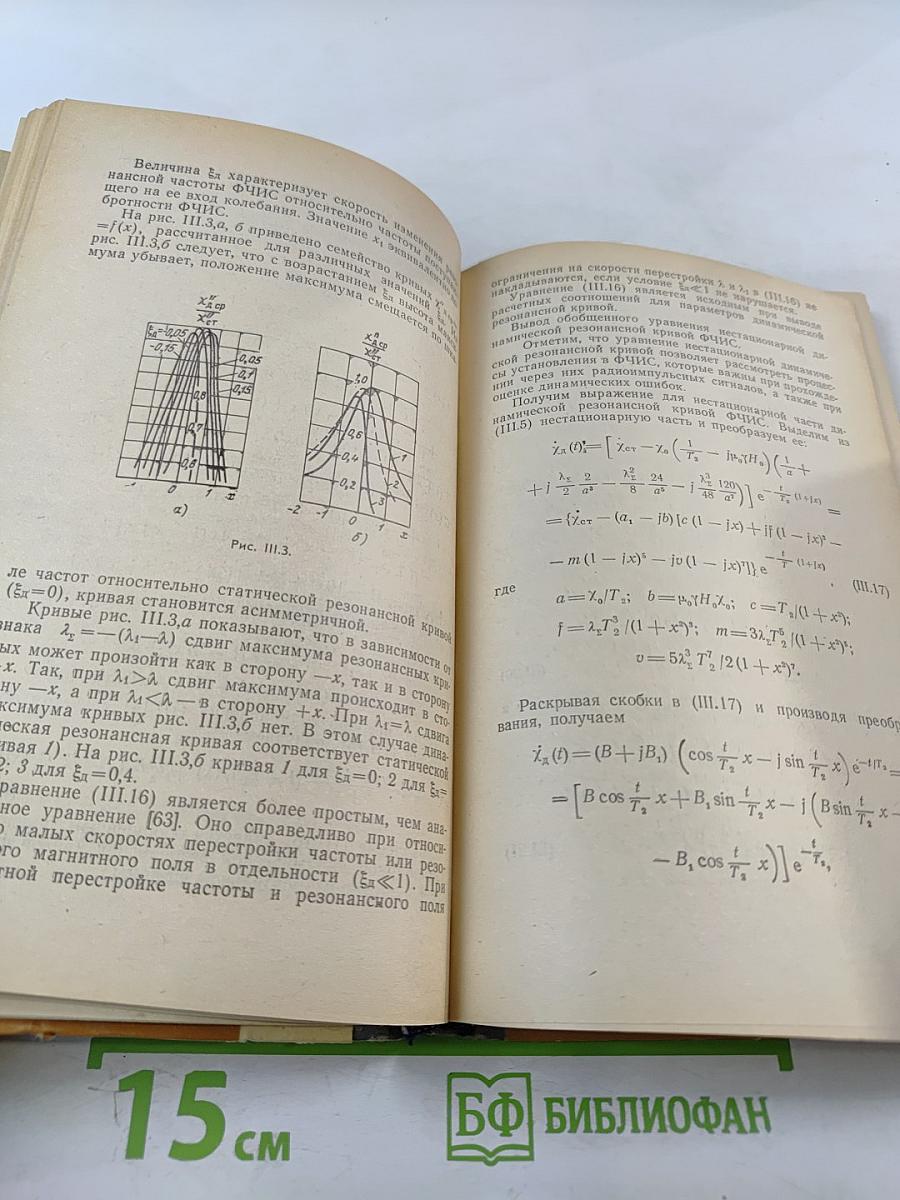 Величина ξд характеризует скорость изменения
нансной частоты ФЧИС относительно частоты
щего на ее вход колебания. Значение x₁
бротности ФЧИС.
На рис. III.3,а, б приведено семейство кривых
=f(x), рассчитанное для различных значений ξд.
рис. III.3,б следует, что с возрастанием ξд высота
мума убывает, положение максимума смещается по
χ″д ср
χ″ст
ξд=-0,05
-0,15
0,05
0,1
0,15
0,8
0,7
0,6
-1 0 1 x
а)
χд ср
χ″ст
1,0
0,6
0,4
0,2
1
2
3
-2 -1 0 1 x
б)
Рис. III.3.
ле частот относительно статической резонансной кривой
(ξд=0), кривая становится асимметричной.
Кривые рис. III.3,а показывают, что в зависимости от
знака λΣ=—(λ₁—λ) сдвиг максимума резонансных кри-
ых может произойти как в сторону —x, так и в сторону
x. Так, при λ₁>λ сдвиг максимума происходит в сто-
ну —x, а при λ₁<λ — в сторону +x. При λ₁=λ сдвига
ксимума кривых рис. III.3,б нет. В этом случае дина-
ческая резонансная кривая соответствует статической
ивая 1). На рис. III.3,б кривая 1 для ξд=0; 2 для ξд=
2; 3 для ξд=0,4.
равнение (III.16) является более простым, чем ана-
ное уравнение [63]. Оно справедливо при относи-
о малых скоростях перестройки частоты или резо-
ого магнитного поля в отдельности (ξд≪1). При
тной перестройке частоты и резонансного поля
ограничения на скорости перестройки λ и λ₁ в (III.16) не
накладываются, если условие ξд≪1 не нарушается.
Уравнение (III.16) является исходным при выводе
расчетных соотношений для параметров динамической
резонансной кривой.
Вывод обобщенного уравнения нестационарной ди-
намической резонансной кривой ФЧИС.
Отметим, что уравнение нестационарной динамиче-
ской резонансной кривой позволяет рассмотреть процес-
сы установления в ФЧИС, которые важны при прохожде-
нии через них радиоимпульсных сигналов, а также при
оценке динамических ошибок.
Получим выражение для нестационарной части ди-
намической резонансной кривой ФЧИС. Выделим из
(III.5) нестационарную часть и преобразуем ее:
χ̇д (t) = [χ̇ст — χ₀ (1/T₂ — jμ₀γH₀) (1/a +
+ j λΣ/2 2/a³ — λΣ²/8 24/a⁵ — j λΣ³/48 120/a⁷)] e^(—t/T₂ (1+jx)) =
= {χ̇ст — (a₁ — jb) [c (1 — jx) + jf (1 — jx)³ —
— m (1 — jx)⁵ — jv (1 — jx)⁷]} e^(—t/T (1+jx)) (III.17)
где a = χ₀/T₂; b = μ₀γH₀χ₀; c = T₂/(1 + x²);
f = λΣT₂³/(1 + x²)³; m = 3λΣT₂⁵/(1 + x²)⁵;
v = 5λΣ³ T₂⁷/2 (1 + x²)⁷.
Раскрывая скобки в (III.17) и производя преобр
вания, получаем
χ̇д (t) = (B + jB₁) (cos t/T₂ x — j sin t/T₂ x) e^(—t/T₂) =
= [B cos t/T₂ x + B₁ sin t/T₂ x — j (B sin t/T₂ x —
— B₁ cos t/T₂ x)] e^(—t/T₂),
15 см
БФ БИБЛИОФАН